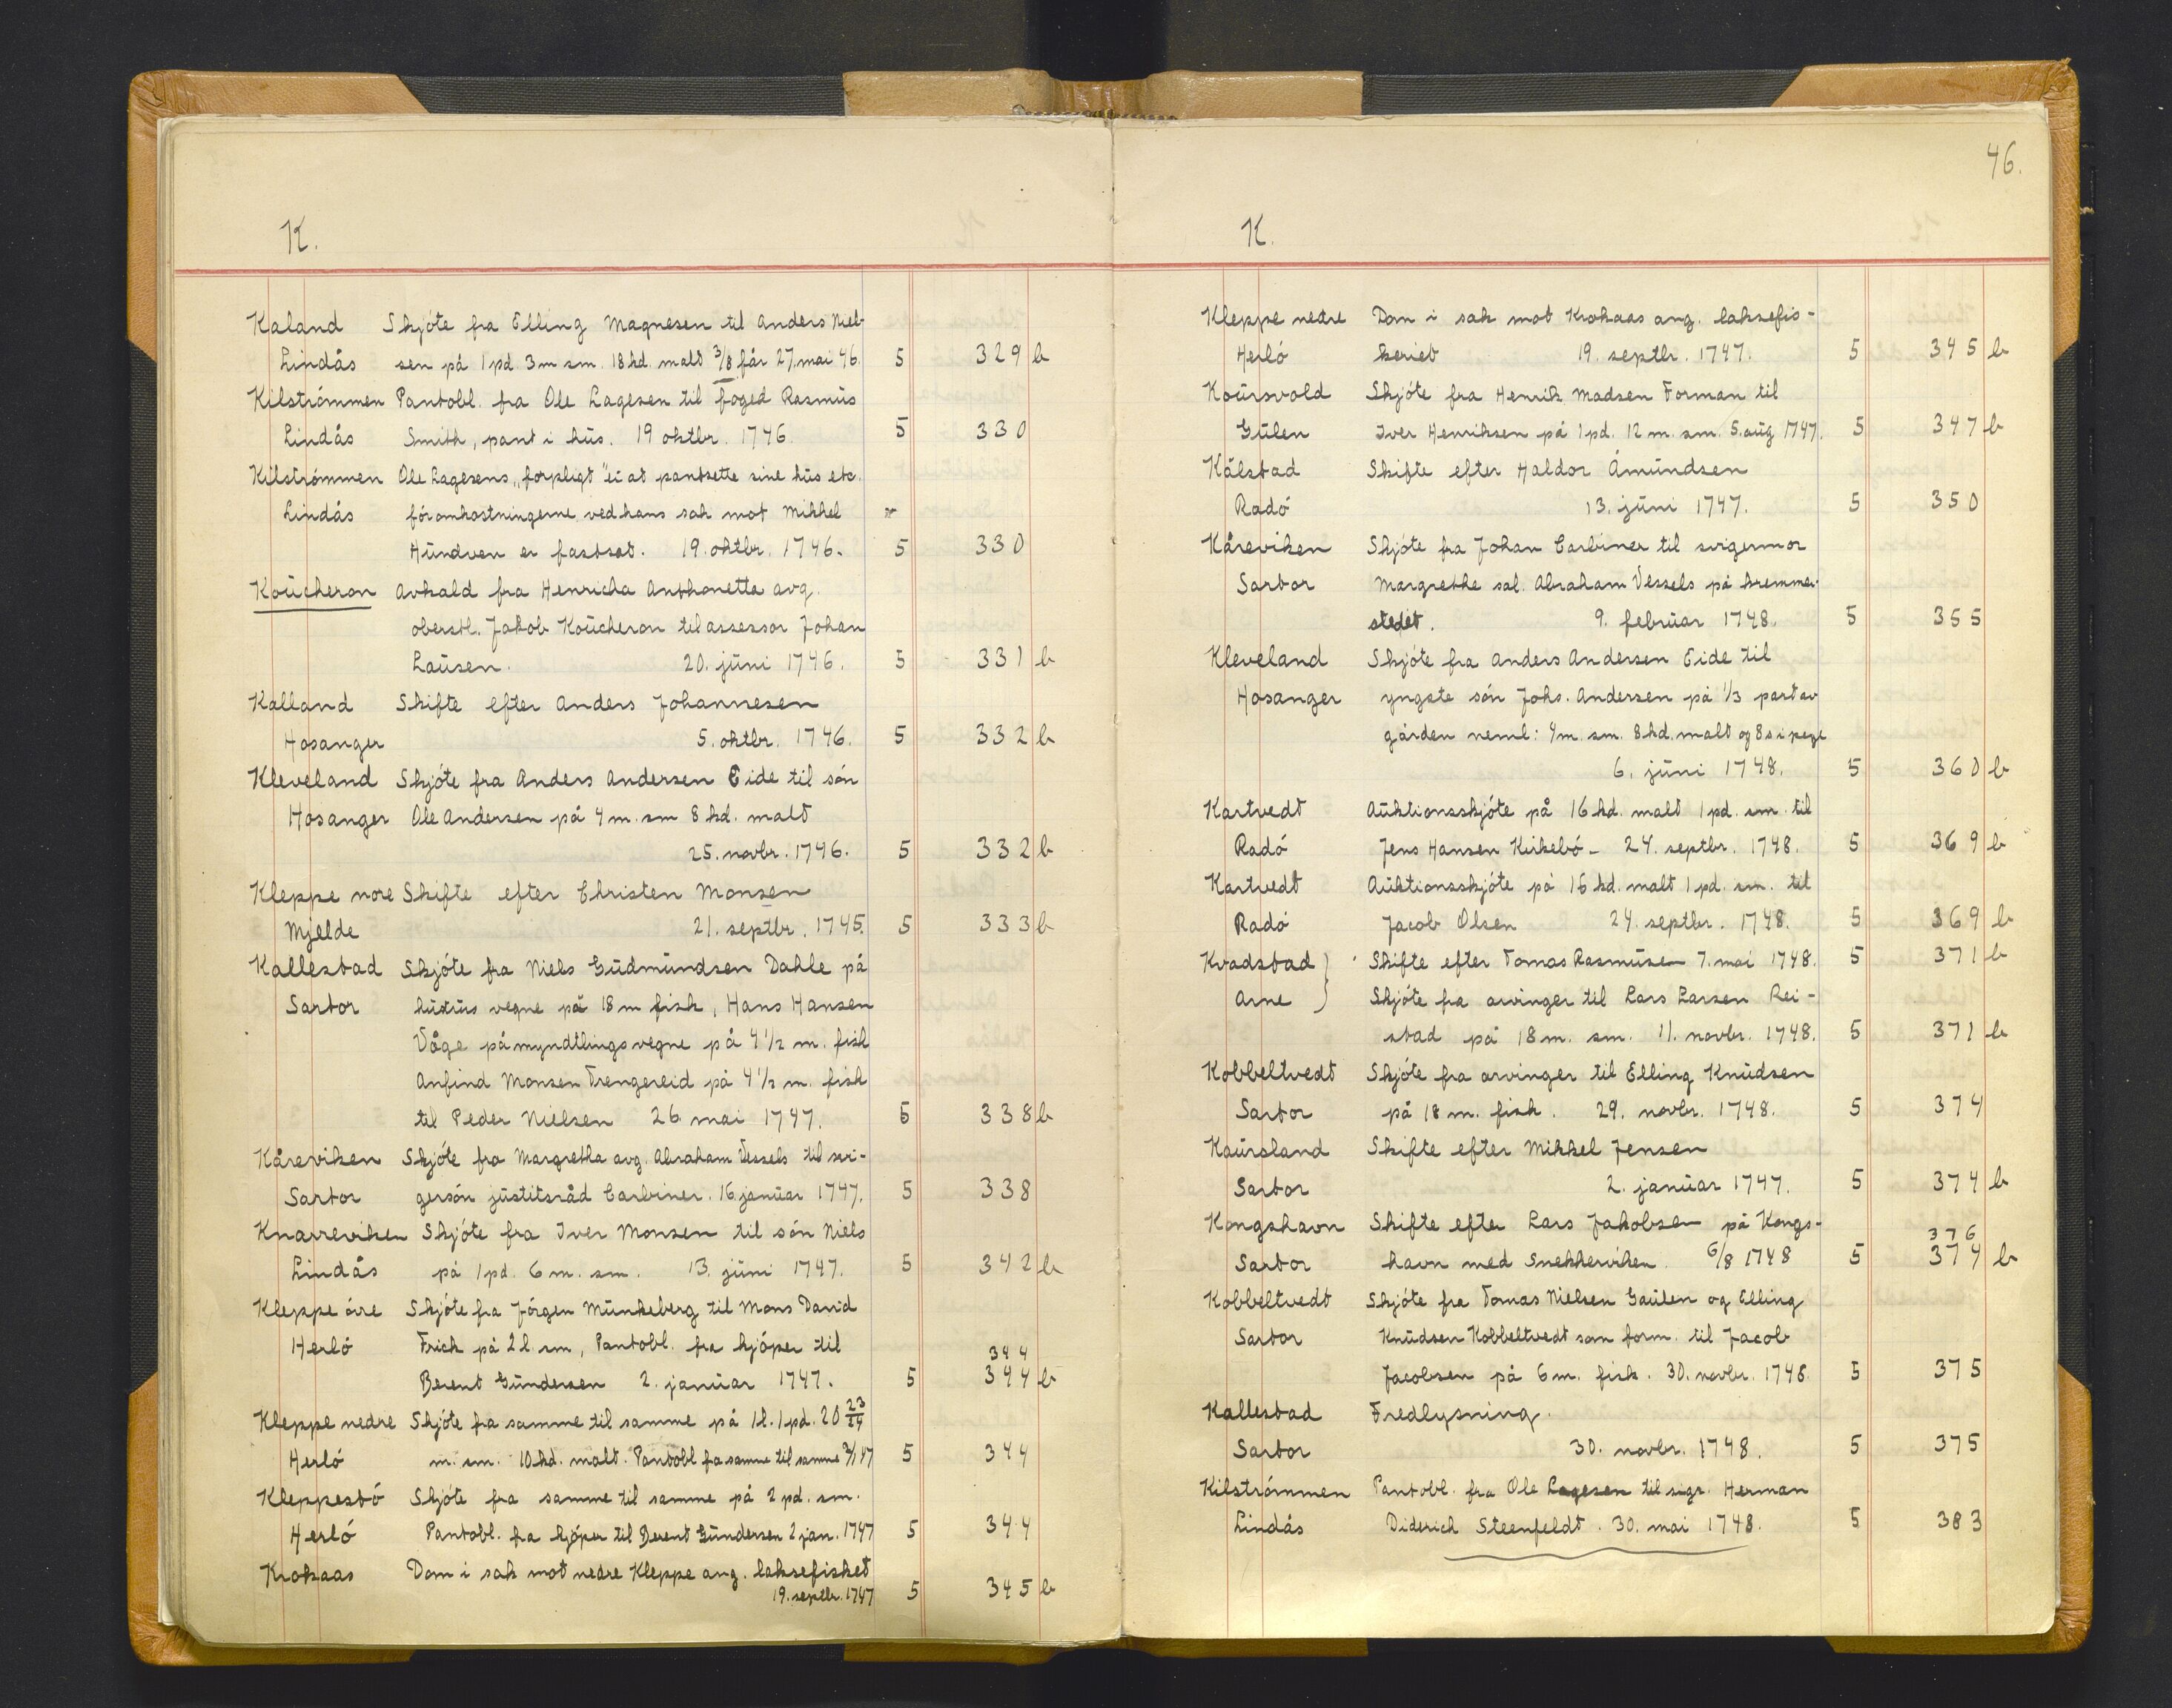 K.
Kaland Skjóte fra Elling Magnesen til Anders Niel-
Lindås sen på 1 pd. 3 m sm. 18 kd. malt 3/8 får 27. mai 46. 5 329 b
Kilstrómmen Pantobl. fra Ole Lagesen til foged Rasmus
Lindås Smith, pant i hus. 19 oktbr. 1746. 5 330
Kilstrómmen Ole Lagesens „forpligt" ei at pantsette sine hus etc.
Lindås fór omkostningerne ved hans sak mot Mikkel
Hundven er fastsat. 19. oktbr. 1746. 5 330
Koucheron Avkald fra Henricha Anthonetta avg.
oberstl. Jakob Koucheron til assessor Johan
Lausen. 20. juni 1746. 5 331 b
Kalland Skifte efter Anders Johannesen
Hosanger 5. oktbr. 1746. 5 332 b
Kleveland Skjóte fra Anders Andersen Eide til són
Hosanger Ole Andersen på 4 m. sm 8 kd. malt
25. novbr. 1746. 5 332 b
Kleppe nore Skifte efter Christen Monsen
Mjelde 21. septbr. 1745. 5 333 b
Kallestad Skjóte fra Niels Gudmundsen Dahle på
Sartor hustrus vegne på 18 m fisk, Hans Hansen
Våge på myndtlings vegne på 4 1/2 m. fisk
Anfind Monsen Trengereid på 4 1/2 m. fisk
til Peder Nielsen 26 mai 1747. 5 338 b
Kåreviken Skjóte fra Margretha avg. Abraham Vessels til svi-
Sartor gersón justitsråd Carbiner. 16 januar 1747. 5 338
Knarreviken Skjóte fra Iver Monsen til són Niels
Lindås på 1 pd. 6 m. sm. 13. juni 1747. 5 342 b
Kleppe óvre Skjóte fra Jórgen Munkeberg til Mons David
Herló Frich på 2 l. sm, Pantobl. fra kjóper til 344
Berent Gundersen 2. januar 1747. 5 344 b
Kleppe nedre Skjóte fra samme til samme på 1 l. 1 pd. 20 23/24
Herló m. sm. 10 kd. malt. Pantobl fra samme til samme 2/1 47 5 344
Kleppestó Skjóte fra samme til samme på 2 pd. sm.
Herló Pantobl. fra kjóper til Berent Gundersen 2 jan. 1747 5 344
Krokaas Dom i sak mot nedre Kleppe ang. laksefisket
19. septbr. 1747 5 345 b
46.
K.
Kleppe nedre Dom i sak mot Krokaas ang. laksefis-
Herló keriet 19. septbr. 1747. 5 345 b
Koursvold Skjóte fra Henrik Madsen Forman til
Gulen Iver Henriksen på 1 pd. 12 m. sm. 5. aug 1747. 5 347 b
Kålstad Skifte efter Haldor Ámundsen
Radó 13. juni 1747. 5 350
Kåreviken Skjóte fra Johan Carbiner til svigermor
Sartor Margrethe sal. Abraham Vessels på kremmer-
stedet. 9. februar 1748. 5 355
Kleveland Skjóte fra Anders Andersen Eide til
Hosanger yngste són Johs. Andersen på 1/3 part av
gården neml: 4 m. sm. 8 kd. malt og 8 s i penge
6. juni 1748. 5 360 b
Kartvedt Auktionsskjóte på 16 kd. malt 1 pd. sm. til
Radó Jens Hansen Kirkebó - 24. septbr. 1748. 5 369 b
Kartvedt Auktionsskjóte på 16 kd. malt 1 pd. sm. til
Radó Jacob Olsen 24. septbr. 1748. 5 369 b
Kvadstad } Skifte efter Tomas Rasmusen 7. mai 1748. 5 371 b
Arne } Skjóte fra arvinger til Lars Larsen Rei-
stad på 18 m. sm. 11. novbr. 1748. 5 371 b
Kobbeltvedt Skjóte fra arvinger til Elling Knudsen
Sartor på 18 m. fisk. 29. novbr. 1748. 5 374
Kaursland Skifte efter Mikkel Jensen
Sartor 2. januar 1747. 5 374 b
Kongshavn Skifte efter Lars Jakobsen på Kongs- 376
Sartor havn med Snekkerviken. 6/8 1748 5 374 b
Kobbeltvedt Skjóte fra Tomas Nielsen Gaulen og Elling
Sartor Knudsen Kobbeltvedt som form. til Jacob
Jacobsen på 6 m. fisk. 30. novbr. 1748 5 375
Kallestad Fredlysning.
Sartor 30. novbr. 1748. 5 375
Kilstrómmen Pantobl. fra Ole Lagesen til sigr. Herman
Lindås Diderich Steenfeldt. 30. mai 1748. 5 383